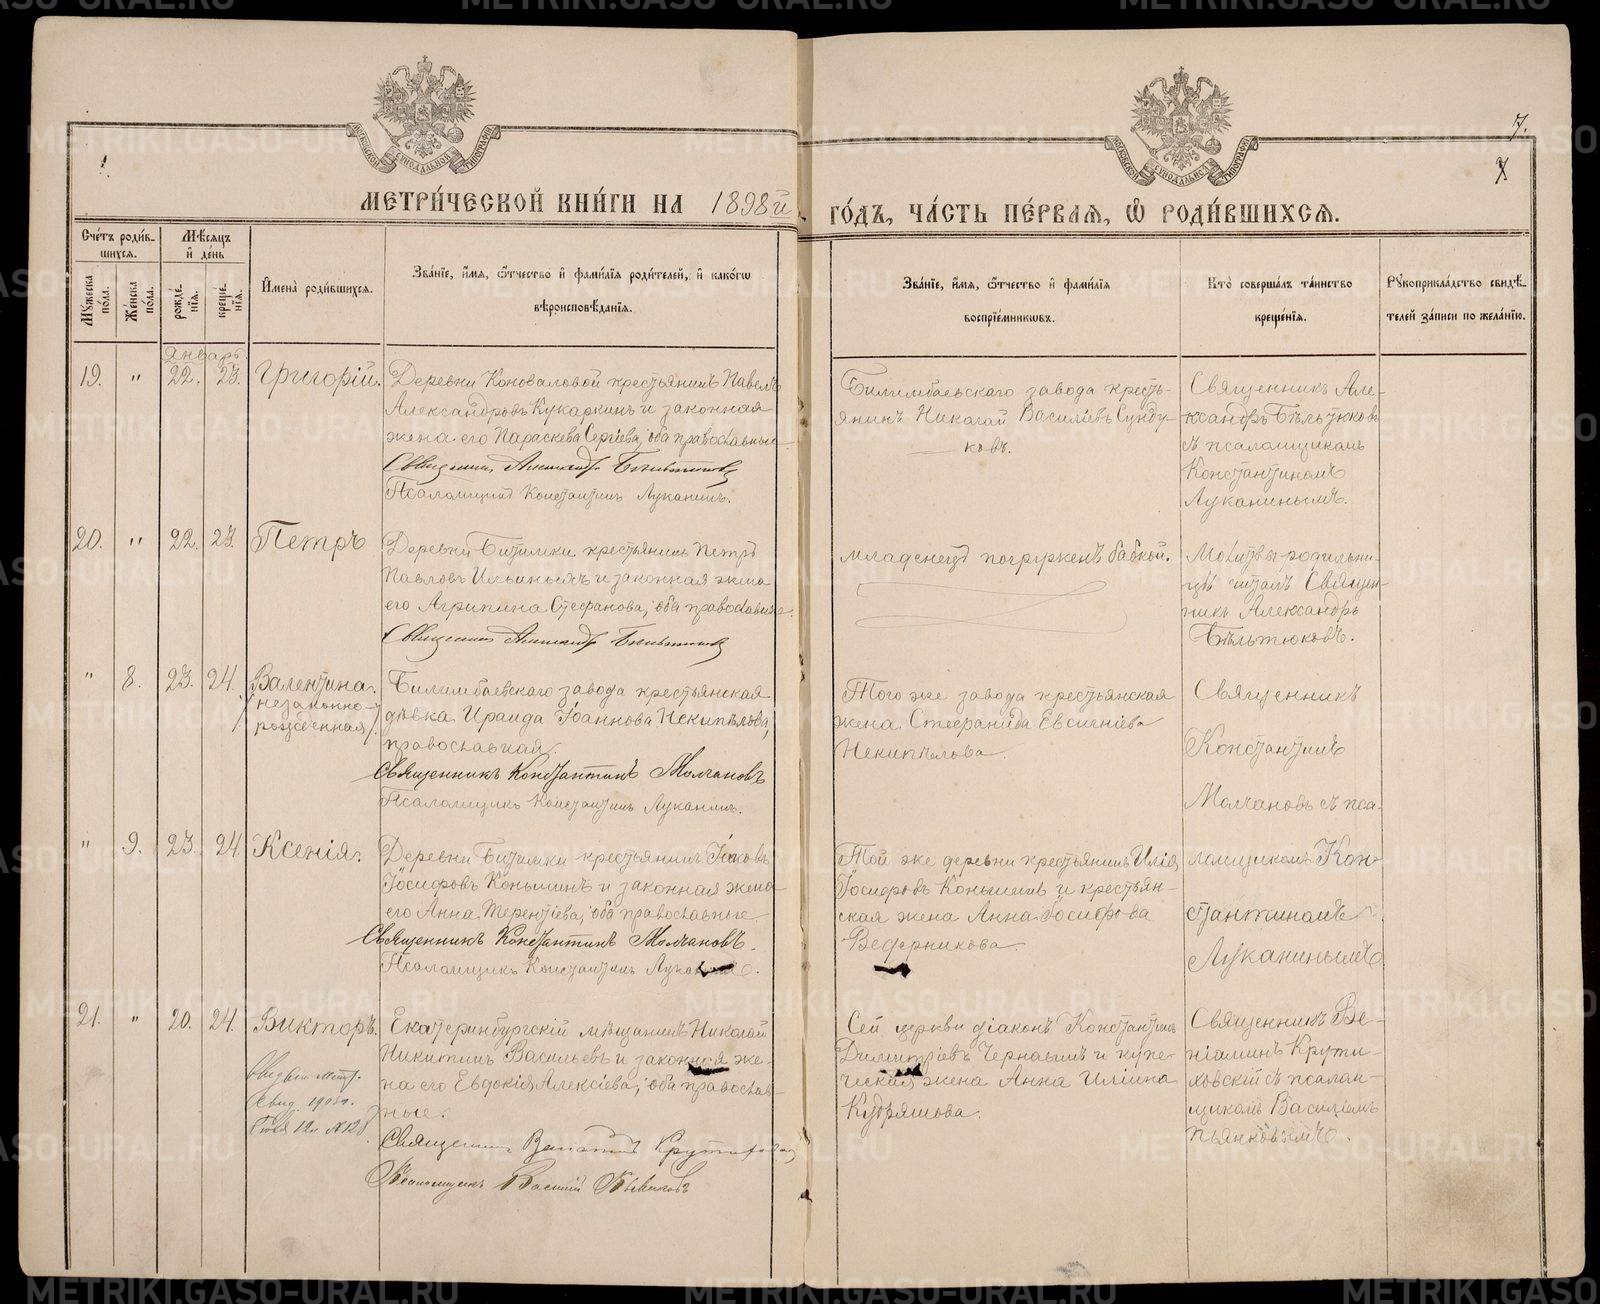 МЕТРИ́ЧЕСКОЙ КНИ́ГИ НА 1898й
ГО́ДЪ, ЧА́СТЬ ПЕ́РВАЯ, Ѡ҆ РОДИ́ВШИХСЯ.
7.
Сче́тъ роди́в-
шихся.
Мѣ́сяцъ
и҆ де́нь
Мꙋ́жеска по́ла.
Же́нска по́ла.
рожде́-
нїя.
креще́-
нїя.
И҆мена̀ роди́вшихся.
Зва́нїе, и҆́мя, ѻ҆́тчество и҆ фами́лїя роди́телей, и҆ како́гѡ
вѣроисповѣ́данїя.
Зва́нїе, и҆́мя, ѻ҆́тчество и҆ фами́лїя
воспрїе́мникѡвъ.
Кто̀ соверша́лъ та́инство
креще́нїя.
Рꙋкоприкла́дство свидѣ́-
телей за́писи по жела́нїю.
Январь
19. " 22. 23. Григорій.
Деревни Коноваловой крестьянинъ Павелъ
Александровъ Кукаркинъ и законная
жена его Параскева Сергіева, оба православные
Священникъ Александръ Бѣльтюковъ
Псаломщикъ Константинъ Луканинъ.
Билимбаевскаго завода кресть-
янинъ Николай Василіевъ Сунду-
ковъ.
Священникъ Але-
ксандръ Бѣльтюковъ
съ псаломщикомъ
Константиномъ
Луканинымъ.
20. " 22. 23. Петръ
Деревни Битимки крестьянинъ Петръ
Павловъ Ильиныхъ и законная жена
его Агрипина Стефанова, оба православные.
Священникъ Александръ Бѣльтюковъ
младенецъ погруженъ бабкой.
Молитвы родильни-
цѣ читалъ Священ-
никъ Александръ
Бѣльтюковъ.
" 8. 23. 24. Валентина.
(незаконно-
рожденная)
Билимбаевскаго завода крестьянская
дѣвка Ираида Іоаннова Некипѣлова,
православная.
Священникъ Константинъ Молчановъ
Псаломщикъ Константинъ Луканинъ.
Того же завода крестьянская
жена Стефанида Евсигніева
Некипѣлова.
Священникъ
Константинъ
Молчановъ съ пса-
" 9. 23. 24 Ксенія.
Деревни Битимки крестьянинъ Іаковъ
Іосифовъ Коньшинъ и законная жена
его Анна Терентіева, оба православные
Священникъ Константинъ Молчановъ.
Псаломщикъ Константинъ Луканинъ.
Той же деревни крестьянинъ Илія
Іосифовъ Коньшинъ и крестьян-
ская жена Анна Іосифова
Ведерникова.
ломщикомъ Кон-
стантиномъ
Луканинымъ
21. " 20. 24. Викторъ.
Екатеринбургскій мѣщанинъ Николай
Никитинъ Васильевъ и законная же-
на его Евдокія Алексіева, оба православ-
ные.
Священникъ Веніаминъ Крутиховскій
Псаломщикъ Василій Пьянковъ
Сей церкви діаконъ Константинъ
Димитріевъ Чернавинъ и купе-
ческая жена Анна Иліина
Кудряшова.
Священникъ Ве-
ніаминъ Крути-
ховскій съ псалом-
щикомъ Василіемъ
Пьянковымъ.
METRIKI.GASO-URAL.RU